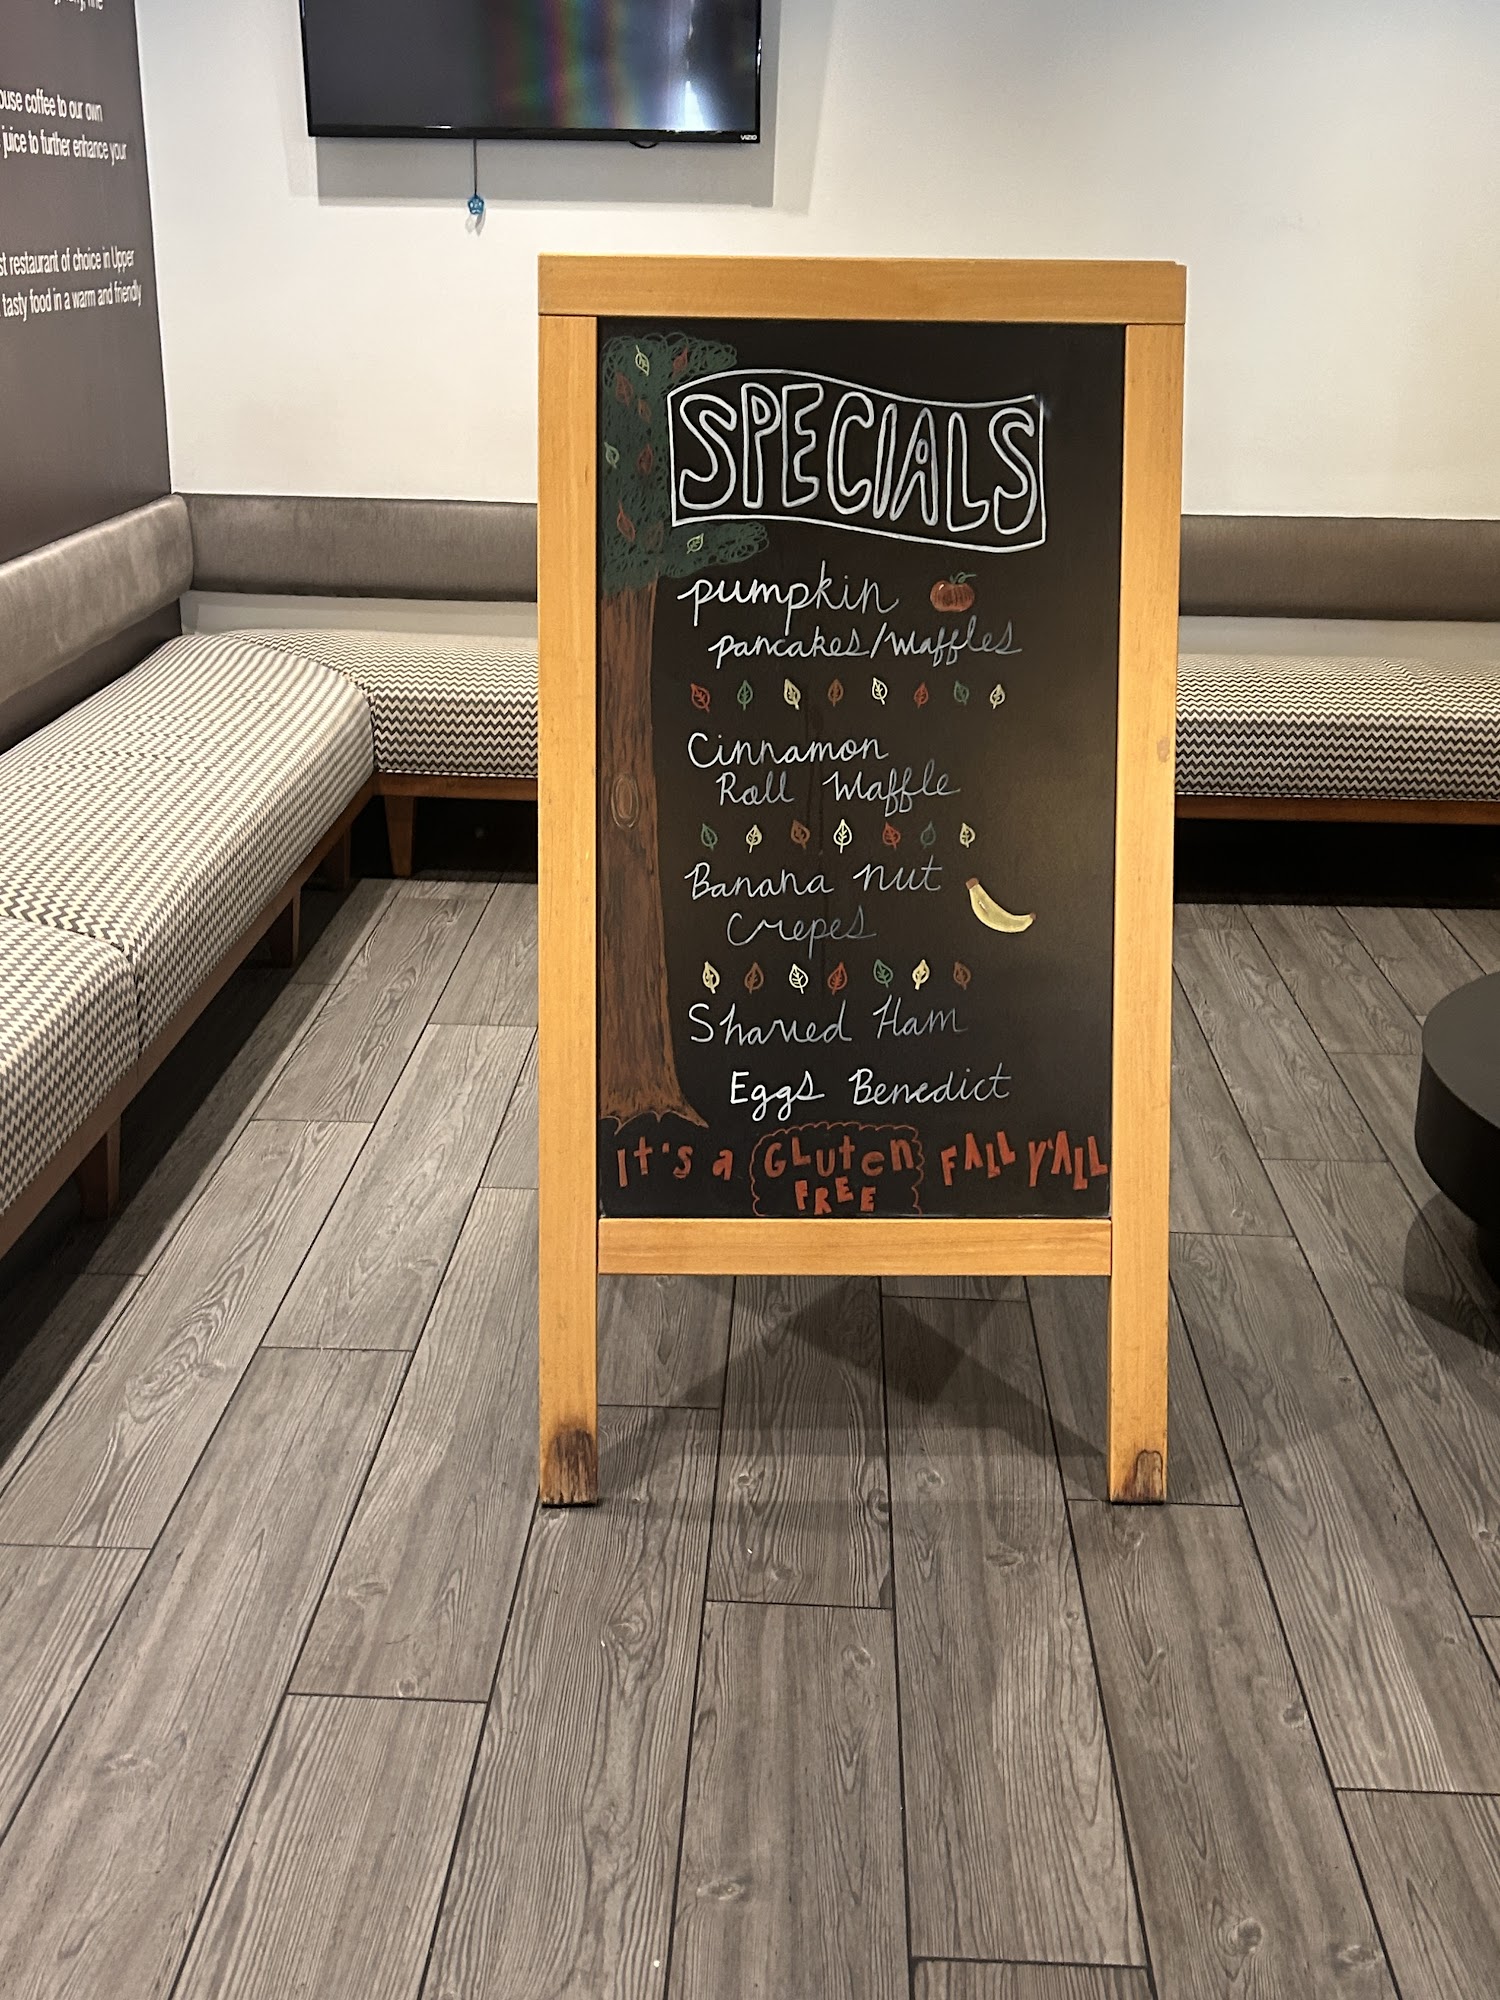 ouse coffee to our own
juice to further enhance your
st restaurant of choice in Upper
tasty food in a warm and friendly
VIZIO
SPECIALS
pumpkin
pancakes/waffles
Cinnamon
Roll Waffle
Banana nut
Crepes
Shaved Ham
Eggs Benedict
It's a GLuten FALL Y'ALL
FREE